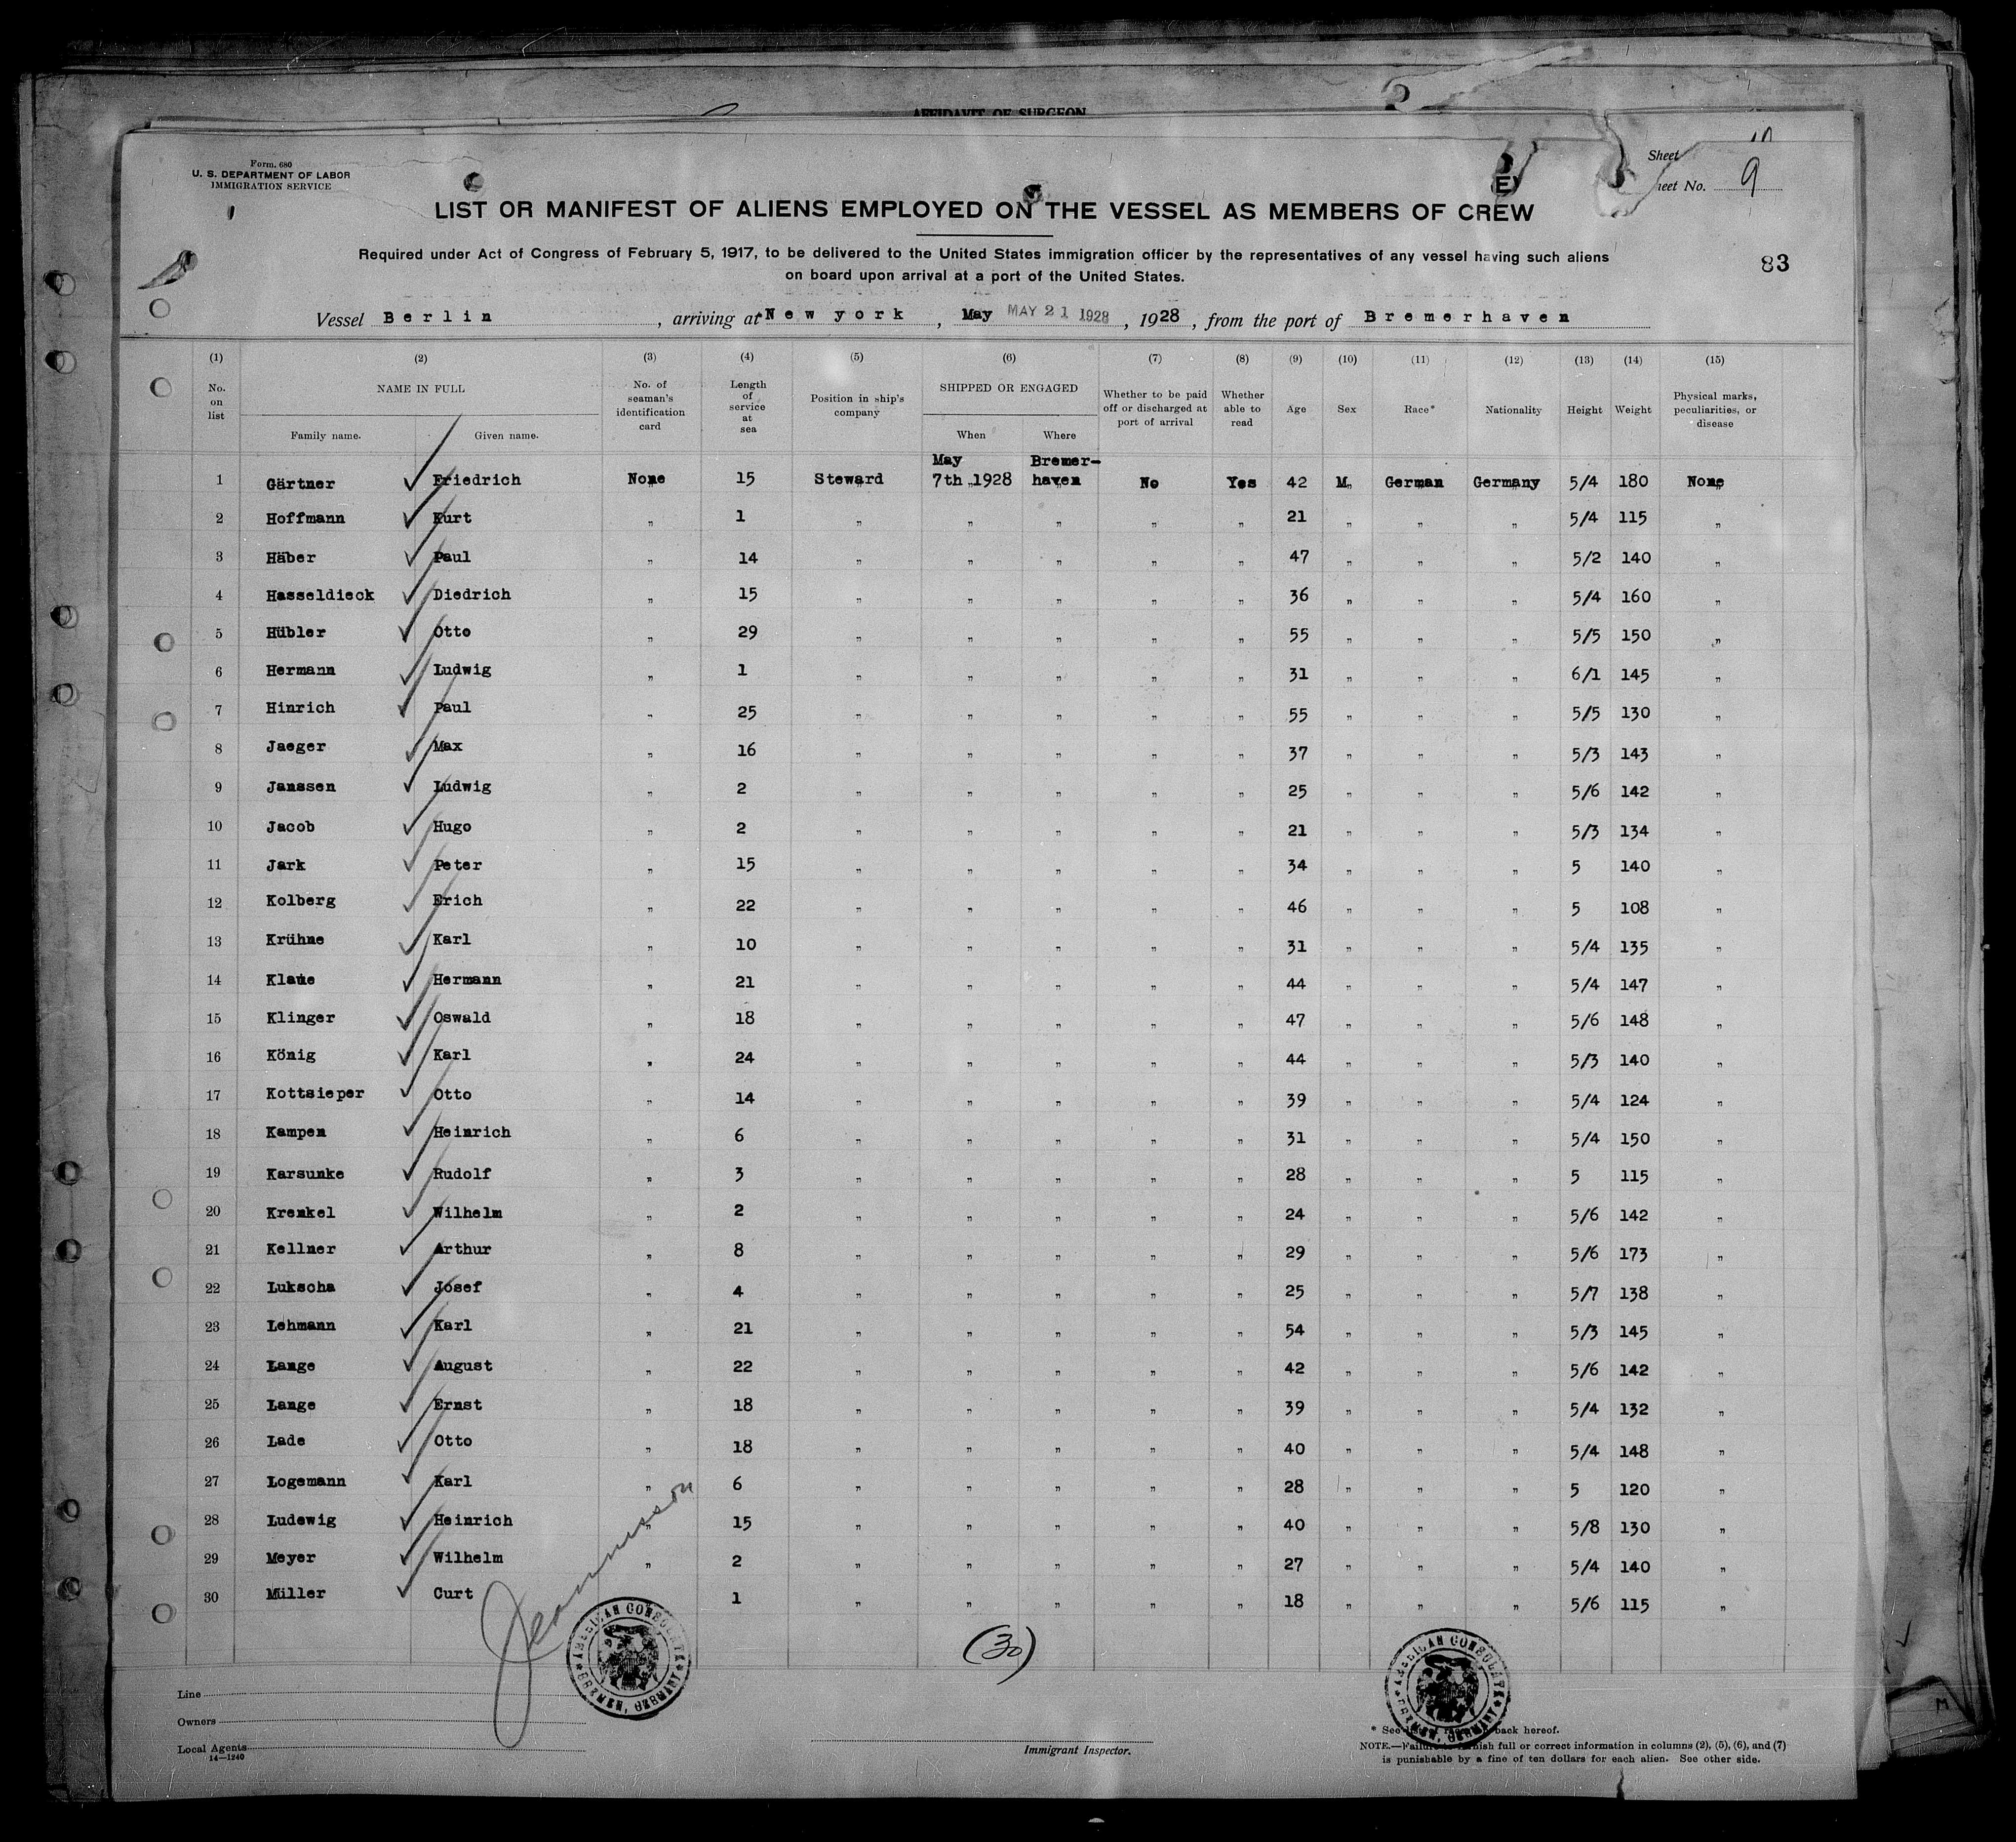 AFFIDAVIT OF SURGEON
Form. 680
U. S. DEPARTMENT OF LABOR
IMMIGRATION SERVICE
Sheet
eet No. 9
LIST OR MANIFEST OF ALIENS EMPLOYED ON THE VESSEL AS MEMBERS OF CREW
Required under Act of Congress of February 5, 1917, to be delivered to the United States immigration officer by the representatives of any vessel having such aliens
on board upon arrival at a port of the United States.
83
Vessel Berlin, arriving at New york, May MAY 21 1928, 1928, from the port of Bremerhaven
(1) (2) (3) (4) (5) (6) (7) (8) (9) (10) (11) (12) (13) (14) (15)
No. on list NAME IN FULL Family name. Given name. No. of seaman's identification card Length of service at sea Position in ship's company SHIPPED OR ENGAGED When Where Whether to be paid off or discharged at port of arrival Whether able to read Age Sex Race* Nationality Height Weight Physical marks, peculiarities, or disease
1 Gärtner Friedrich None 15 Steward May 7th 1928 Bremer-haven No Yes 42 M German Germany 5/4 180 None
2 Hoffmann Kurt " 1 " " " " " 21 " " " 5/4 115 "
3 Häber Paul " 14 " " " " " 47 " " " 5/2 140 "
4 Hasseldieck Diedrich " 15 " " " " " 36 " " " 5/4 160 "
5 Hübler Otto " 29 " " " " " 55 " " " 5/5 150 "
6 Hermann Ludwig " 1 " " " " " 31 " " " 6/1 145 "
7 Hinrich Paul " 25 " " " " " 55 " " " 5/5 130 "
8 Jaeger Max " 16 " " " " " 37 " " " 5/3 143 "
9 Janssen Ludwig " 2 " " " " " 25 " " " 5/6 142 "
10 Jacob Hugo " 2 " " " " " 21 " " " 5/3 134 "
11 Jark Peter " 15 " " " " " 34 " " " 5 140 "
12 Kolberg Erich " 22 " " " " " 46 " " " 5 108 "
13 Krühne Karl " 10 " " " " " 31 " " " 5/4 135 "
14 Hermann " 21 " " " " " 44 " " " 5/4 147 "
15 Klinger Oswald " 18 " " " " " 47 " " " 5/6 148 "
16 König Karl " 24 " " " " " 44 " " " 5/3 140 "
17 Kottsieper Otto " 14 " " " " " 39 " " " 5/4 124 "
18 Kampen Heinrich " 6 " " " " " 31 " " " 5/4 150 "
19 Karsunke Rudolf " 3 " " " " " 28 " " " 5 115 "
20 Krenkel Wilhelm " 2 " " " " " 24 " " " 5/6 142 "
21 Kellner Arthur " 8 " " " " " 29 " " " 5/6 173 "
22 Lukscha Josef " 4 " " " " " 25 " " " 5/7 138 "
23 Lehmann Karl " 21 " " " " " 54 " " " 5/3 145 "
24 Lange August " 22 " " " " " 42 " " " 5/6 142 "
25 Lange Ernst " 18 " " " " " 39 " " " 5/4 132 "
26 Lade Otto " 18 " " " " " 40 " " " 5/4 148 "
27 Logemann Karl " 6 " " " " " 28 " " " 5 120 "
28 Ludewig Heinrich " 15 " " " " " 40 " " " 5/8 130 "
29 Meyer Wilhelm " 2 " " " " " 27 " " " 5/4 140 "
30 Müller Curt " 1 " " " " " 18 " " " 5/6 115 "
(30)
AMERICAN CONSULATE BREMEN, GERMANY
AMERICAN CONSULATE BREMEN, GERMANY
Line
Owners
Local Agents
14—1240
Immigrant Inspector.
* See list of races on back hereof.
NOTE.—Failure to furnish full or correct information in columns (2), (5), (6), and (7)
is punishable by a fine of ten dollars for each alien. See other side.
M